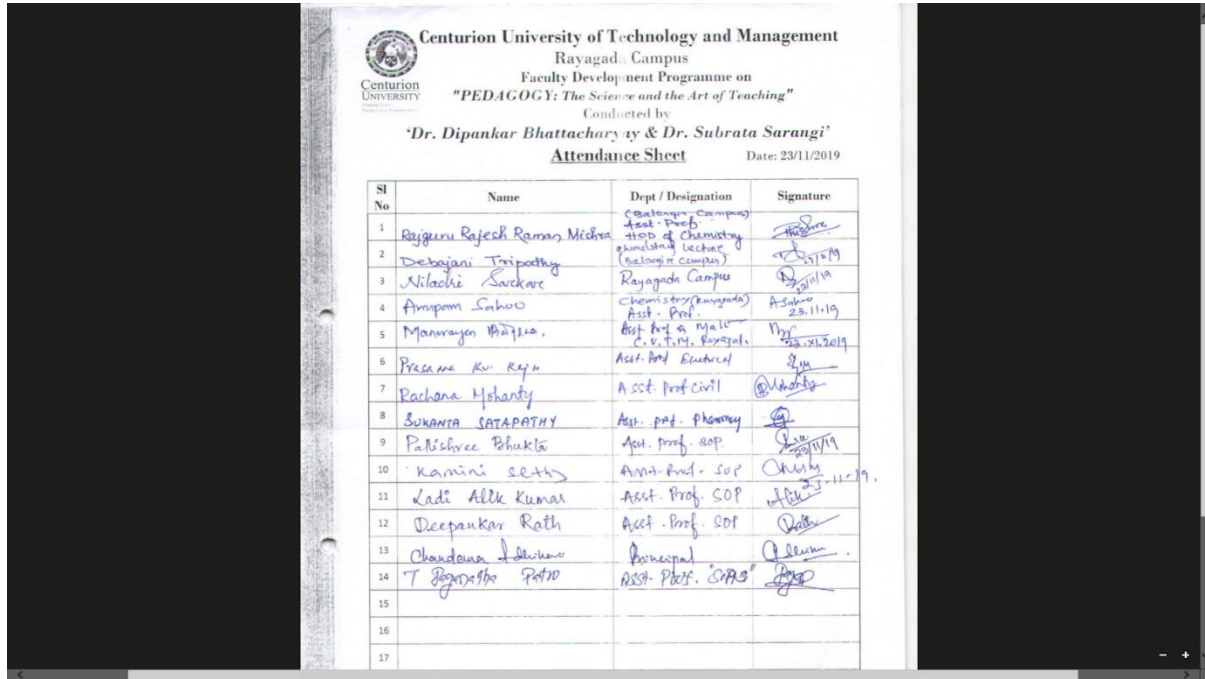 Centurion University of Technology and Management
Rayagada Campus
Centurion
UNIVERSITY
Faculty Development Programme on
"PEDAGOGY: The Science and the Art of Teaching"
Conducted by
'Dr. Dipankar Bhattacharyay & Dr. Subrata Sarangi'
Attendance Sheet Date: 23/11/2019
Sl No Name Dept / Designation Signature
1 Rajguru Rajesh Raman Mishra (Balangir Campus) Asst. Prof. HOD of Chemistry
2 Debajani Tripathy Lecture (Balangir Campus)
3 Niladri Sarkar Rayagada Campus 23/11/19
4 Anupam Sahoo Chemistry (Rayagada) Asst. Prof. ASahoo 23.11.19
5 Asst Prof 23.XI.2019
6 Prasanna Ku. Raju Asst. Prof Electrical
7 Rachana Mohanty Asst. Prof Civil Mohanty
8 SUKANTA SATAPATHY Asst. prof. Pharmacy
9 Pallishree Bhukta Asst. prof. SOP. 23/11/19
10 Kamini Sethy Asst. Prof. SOP 23-11-19.
11 Ladi Alik Kumar Asst. Prof. SOP
12 Deepankar Rath Asst. Prof. SOP Rath
13 Principal
14 T Jagannatha Patro Asst. Prof.
15
16
17